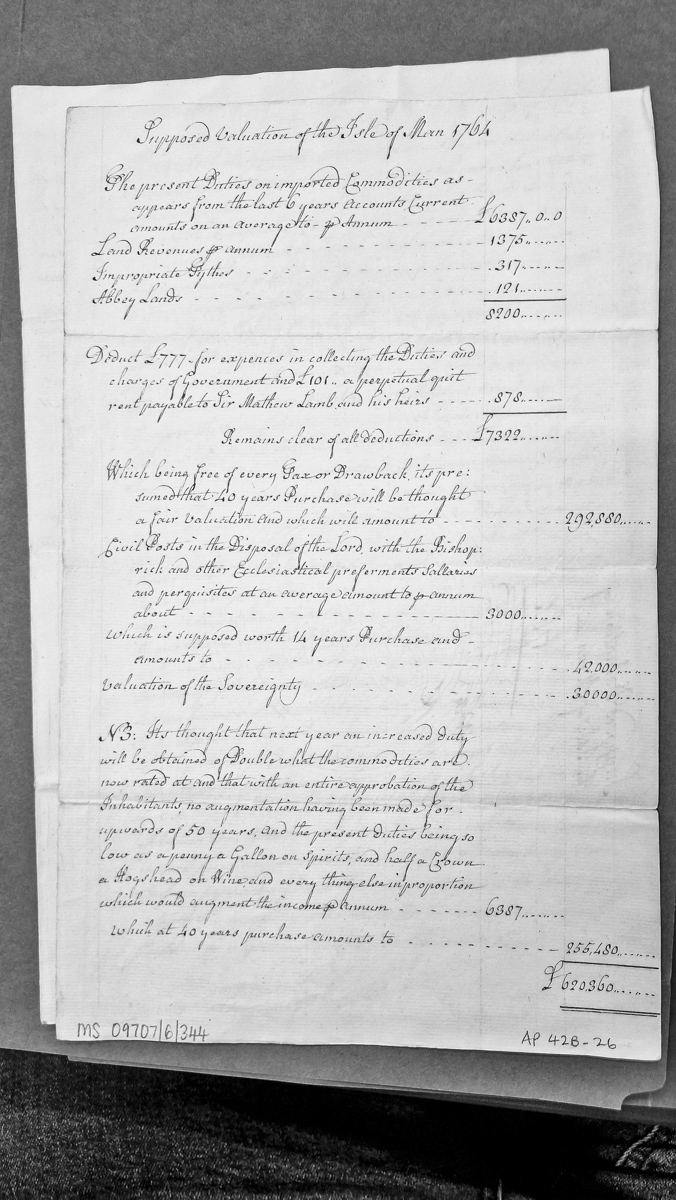 Supposed Valuation of the Isle of Man 1764
The present Duties on imported Commodities as
appears from the last 6 years Accounts Current
amounts on an average to ⅌ Annum - - - - £6387,, 0,, 0
Land Revenues ⅌ annum - - - - 1375,,..,,..
Impropriate Tythes - - - - 317,,..,,..
Abbey Lands - - - - 121,,..,,..
8200,,..,,..
Deduct £777 - for expences in collecting the Duties and
charges of Government and £101,, a perpetual quit
rent payable to Sir Mathew Lamb, and his heirs - - - - 878,,..,,..
Remains clear of all deductions - - - - £7322,,..,,..
Which being free of every Tax or Drawback, its pre:
sumed that 40 years Purchase will be thought
a fair valuation and which will amount to - - - - 292,880,,..,,..
Civil Posts in the Disposal of the Lord, with the Bishop:
rick and other Ecclesiastical preferments Sallaries
and perquisites at an average amount to ⅌ annum
about - - - - 3000,,..,,..
which is supposed worth 14 years Purchase and
amounts to - - - - 42,000,,..,,..
Valuation of the Sovereignty - - - - 30000,,..,,..
NB: Its thought that next year an increased duty
will be obtained of Double what the commodities are
now rated at and that with an entire approbation of the
Inhabitants, no augmentation having been made for
upwards of 50 years, and the present duties being so
low as a penny a Gallon on Spirits, and half a Crown
a Hogshead on Wine and every thing else in proportion
which would augment the income ⅌ Annum - - - - 6387,,..,,..
Which at 40 years purchase amounts to - - - - 255,480,,..,,..
£620,360,,..,,..
MS 09707/6/344
AP 42B-26